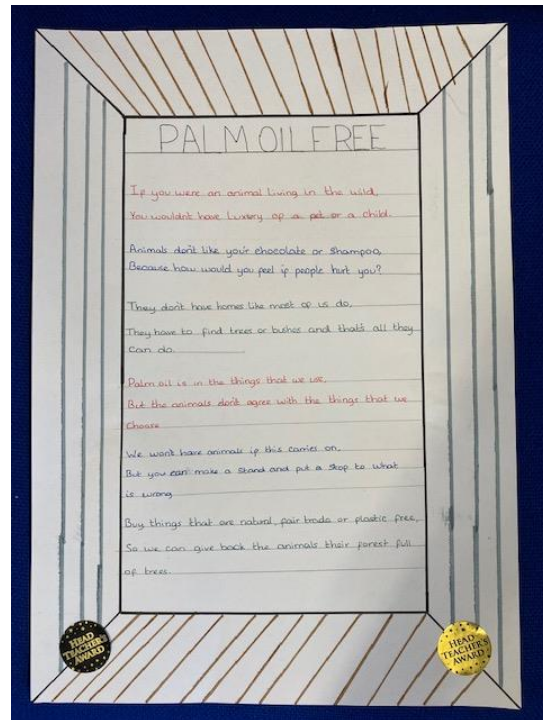 PALM OIL FREE
If you were an animal living in the wild,
You wouldn't have luxury of a pet or a child.
Animals don't like your chocolate or shampoo,
Because how would you feel if people hurt you?
They don't have homes like most of us do,
They have to find trees or bushes and that's all they
can do.
Palm oil is in the things that we use,
But the animals don't agree with the things that we
choose
We won't have animals if this carries on,
But you can make a stand and put a stop to what
is wrong
Buy things that are natural, fair trade or plastic free,
So we can give back the animals their forest full
of trees.
HEAD
TEACHER'S
AWARD
HEAD
TEACHER'S
AWARD